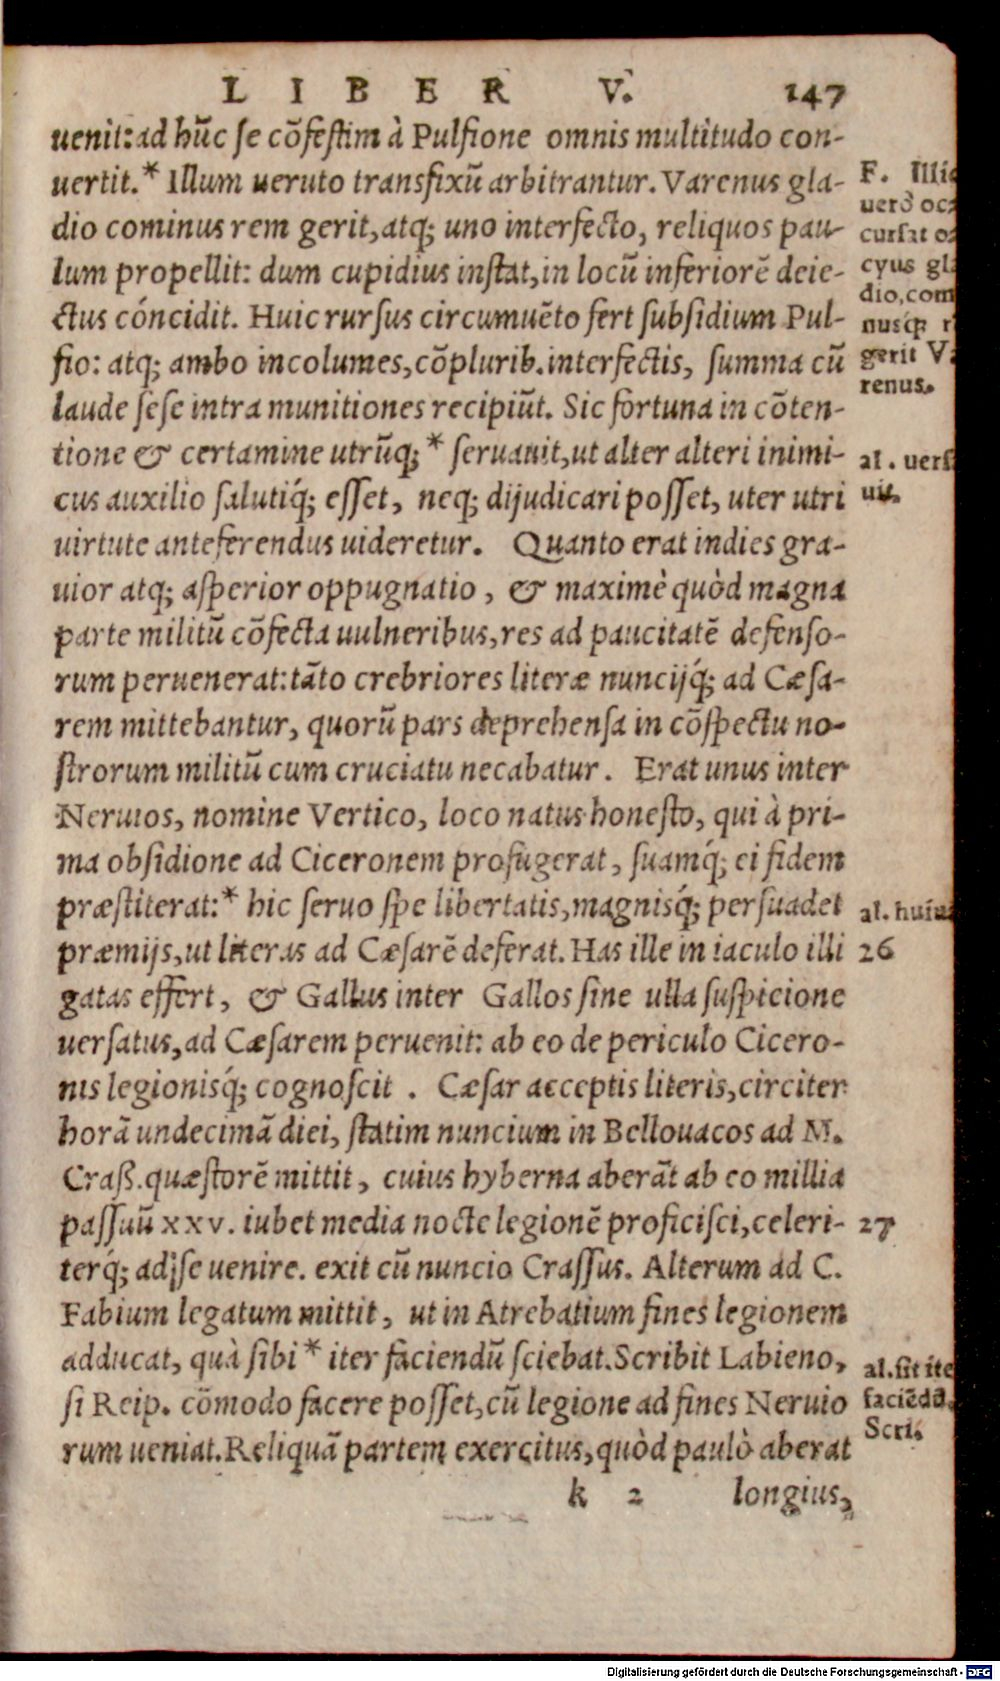 LIBER V. 147
uenit: ad hũc se cõfestim à Pulfione omnis multitudo con-
uertit.* Illum ueruto transfixũ arbitrantur. Varenus gla-
dio cominus rem gerit, atq; uno interfecto, reliquos pau-
lum propellit: dum cupidius instat, in locũ inferiorẽ deie-
ctus cóncidit. Huic rursus circumuẽto fert subsidium Pul-
fio: atq; ambo incolumes, cõplurib. interfectis, summa cũ
laude sese intra munitiones recipiũt. Sic fortuna in cõten-
tione & certamine utrũq;* seruauit, ut alter alteri inimi-
cus auxilio salutiq́; esset, neq; dijudicari posset, uter utri
uirtute anteferendus uideretur. Quanto erat indies gra-
uior atq; asperior oppugnatio, & maximè quòd magna
parte militũ cõfecta uulneribus, res ad paucitatẽ defenso-
rum peruenerat: tãto crebriores literæ nuncijq́; ad Cæsa-
rem mittebantur, quorũ pars deprehensa in cõspectu no-
strorum militũ cum cruciatu necabatur. Erat unus inter
Neruios, nomine Vertico, loco natus honesto, qui à pri-
ma obsidione ad Ciceronem profugerat, suamq́; ei fidem
præstiterat:* hic seruo spe libertatis, magnisq́; persuadet
præmijs, ut literas ad Cæsarẽ deferat. Has ille in iaculo illi
gatas effert, & Gallus inter Gallos sine ulla suspicione
uersatus, ad Cæsarem peruenit: ab eo de periculo Cicero-
nis legionisq́; cognoscit. Cæsar acceptis literis, circiter
horã undecimã diei, statim nuncium in Bellouacos ad M.
Craß. quæstorẽ mittit, cuius hyberna aberãt ab eo millia
passuũ xxv. iubet media nocte legionẽ proficisci, celeri-
terq́; ad se uenire. exit cũ nuncio Crassus. Alterum ad C.
Fabium legatum mittit, ut in Atrebatium fines legionem
adducat, quà sibi* iter faciendũ sciebat. Scribit Labieno,
si Reip. cõmodo facere posset, cũ legione ad fines Neruio
rum ueniat. Reliquã partem exercitus, quòd paulò aberat
k 2 longius,
F. Illic
uerò oc-
cursat o-
cyus gla
dio, com
nusq́;
gerit Va
renus.
al. uers
uit.
al. huius
26
27
al. sit ite
faciẽdũ.
Scri.
Digitalisierung gefördert durch die Deutsche Forschungsgemeinschaft - DFG